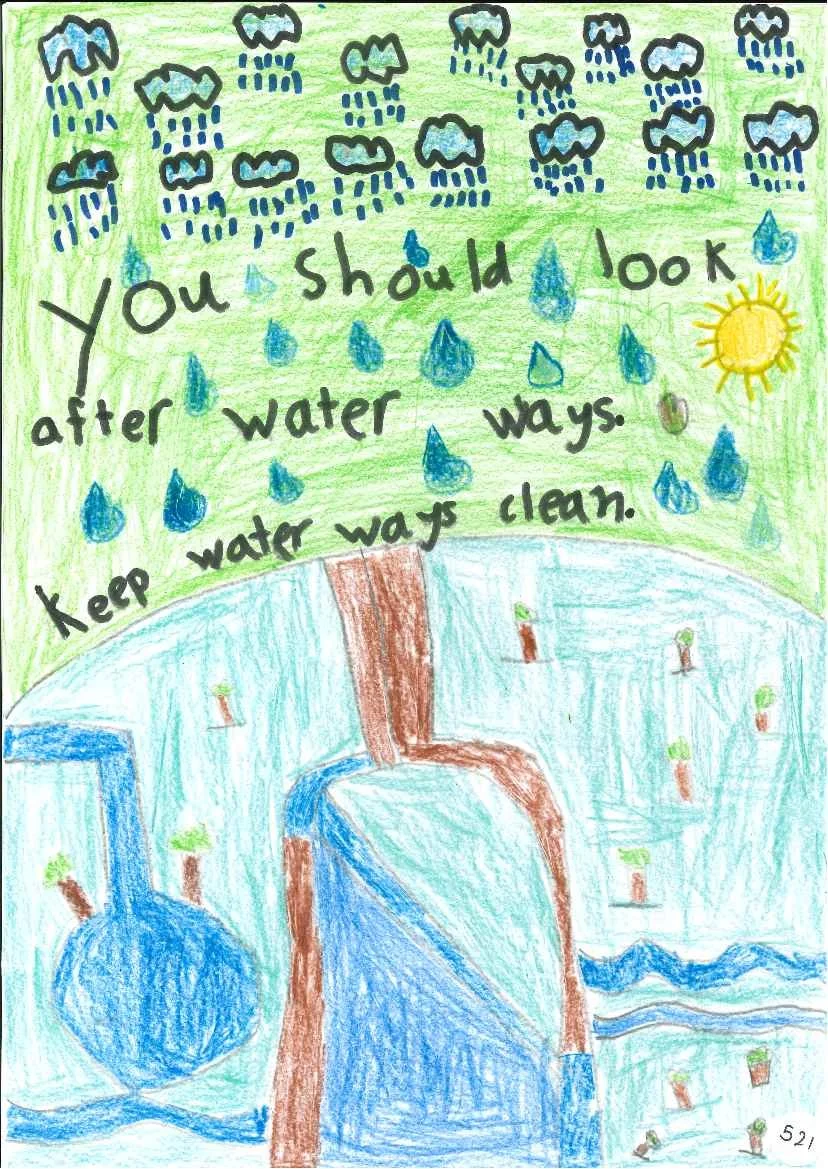 You should look
after water ways.
keep water ways clean.
521